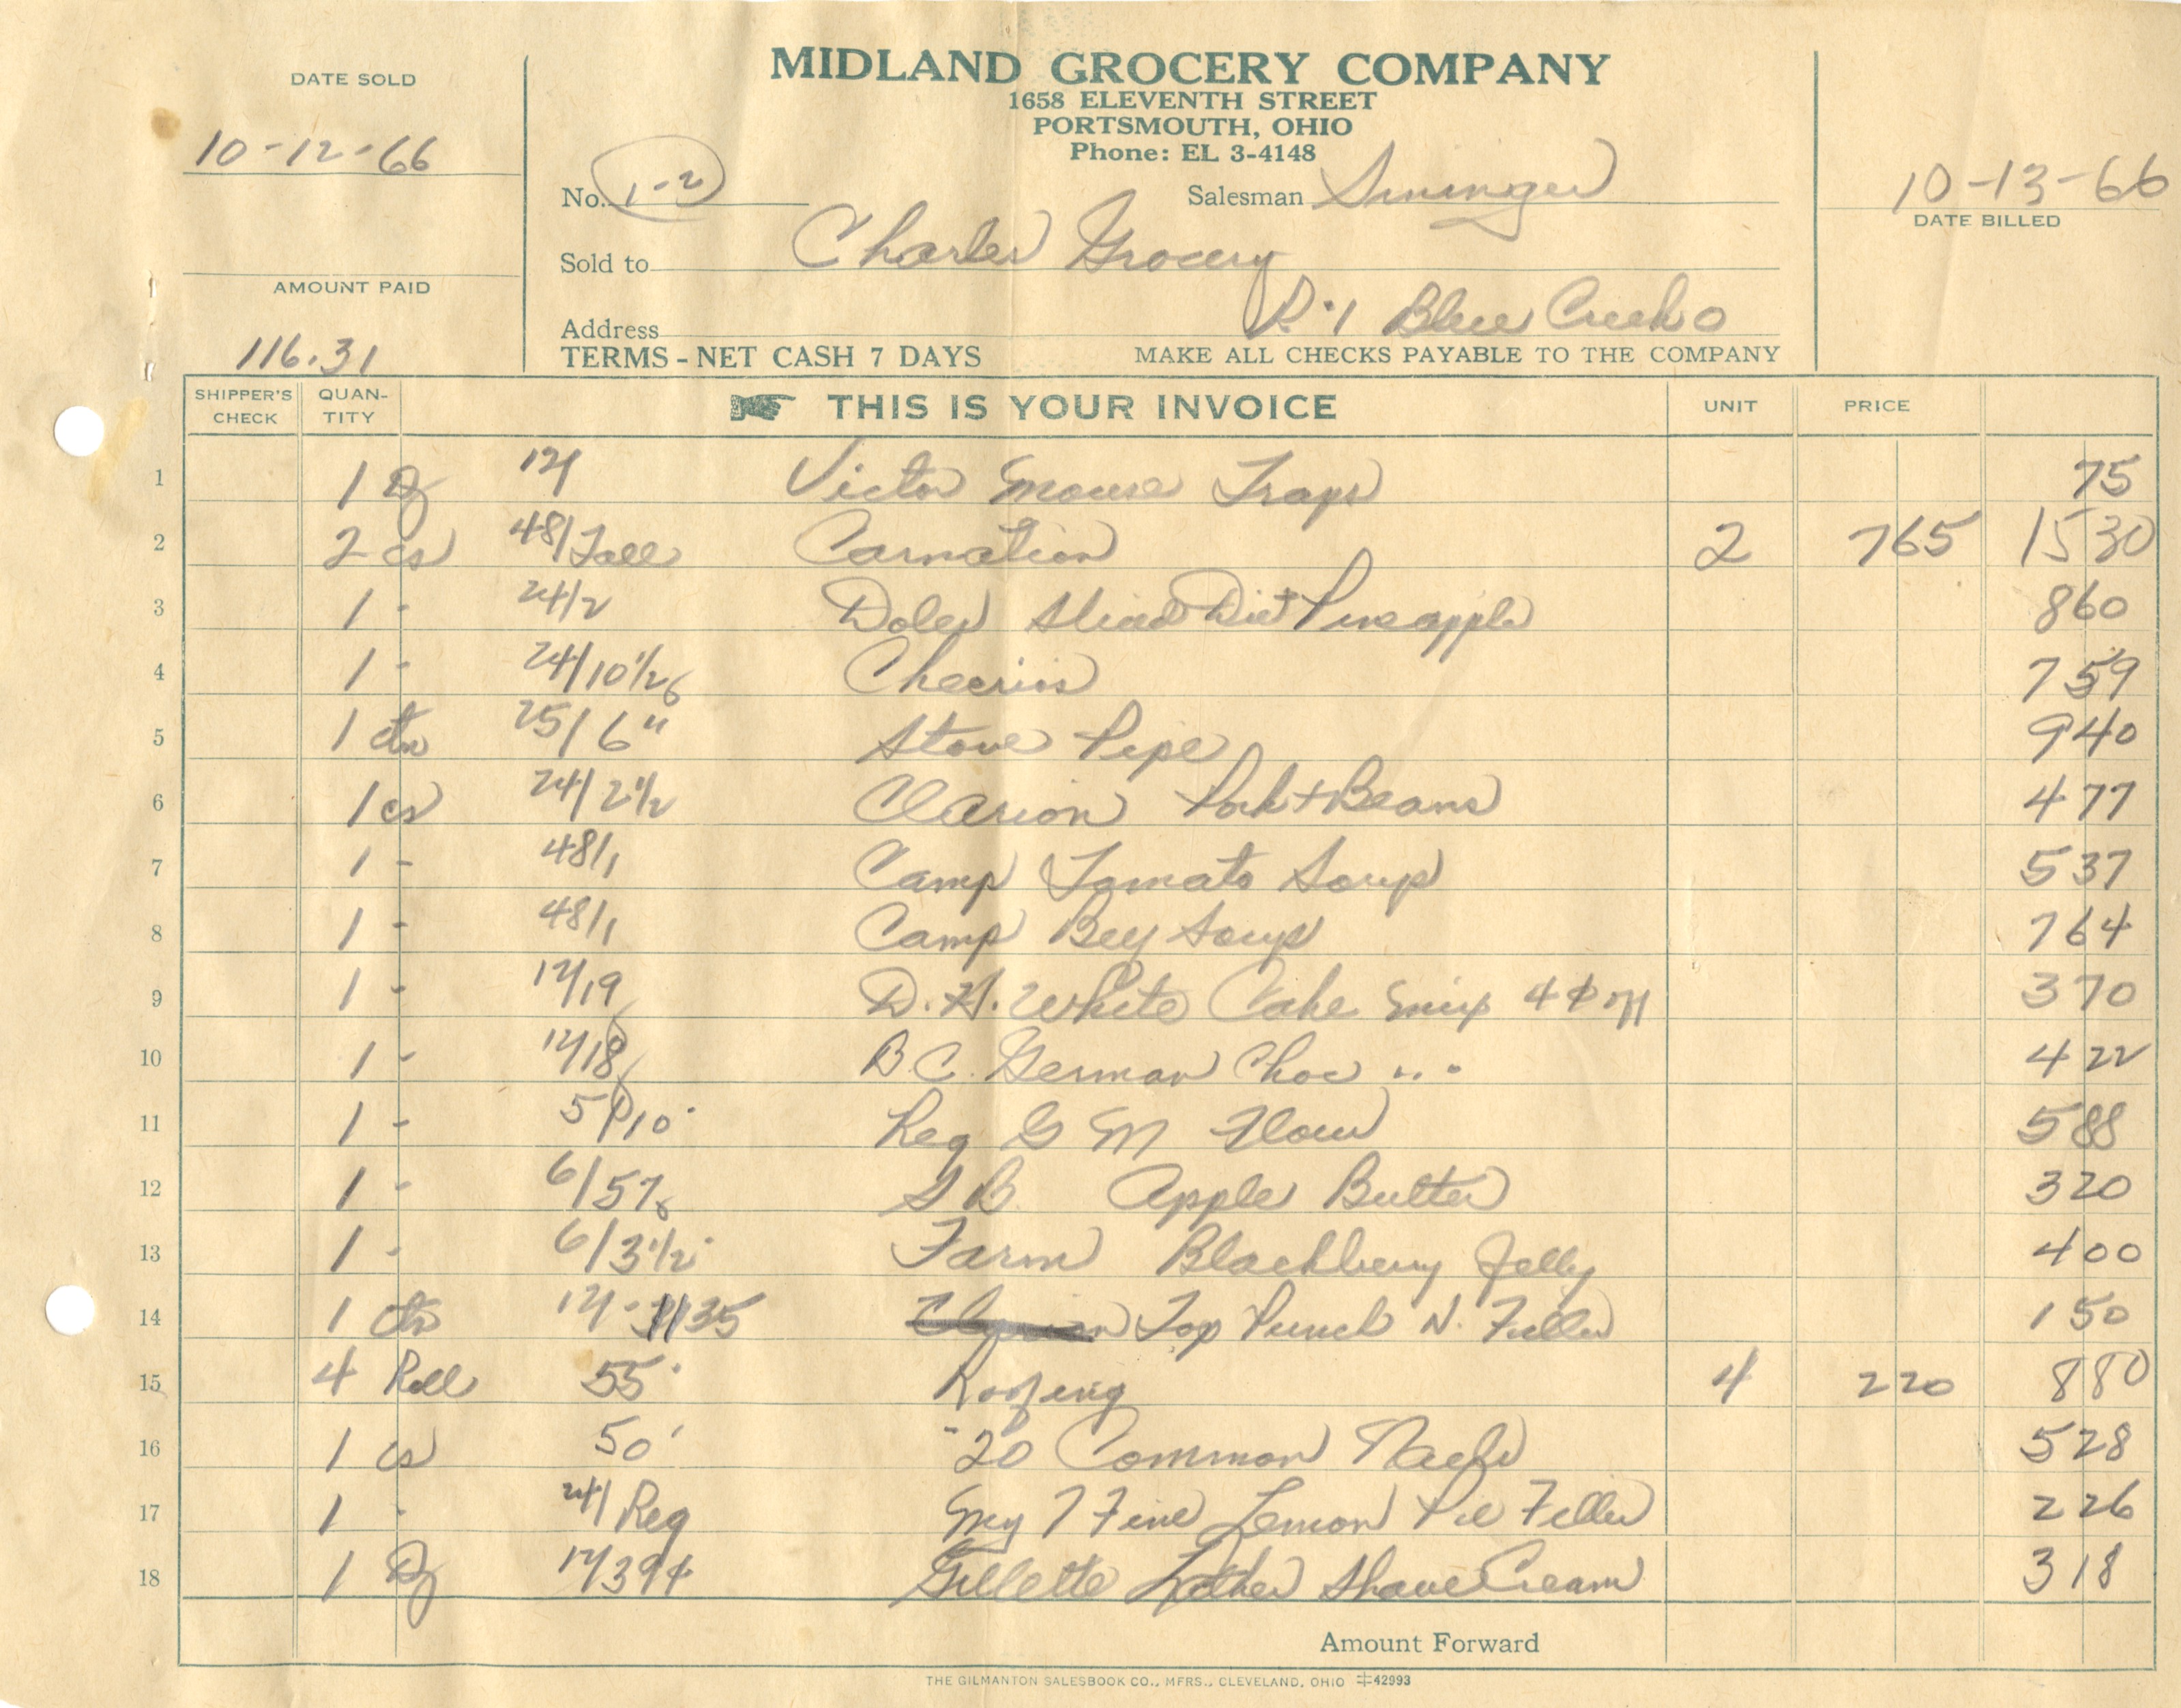 MIDLAND GROCERY COMPANY
1658 ELEVENTH STREET
PORTSMOUTH, OHIO
Phone: EL 3-4148
DATE SOLD
10-12-66
No. 1-2
Salesman
10-13-66
DATE BILLED
Sold to Charles Grocery
AMOUNT PAID
116.31
Address R.1 Blue Creek O
TERMS - NET CASH 7 DAYS MAKE ALL CHECKS PAYABLE TO THE COMPANY
SHIPPER'S CHECK QUAN-TITY THIS IS YOUR INVOICE UNIT PRICE
1 1 Dz 12/ Victor Mouse Traps 75
2 2 cs 48/Tall Carnation 2 765 1530
3 1 - 24/2 Doles Sliced Diet Pineapple 860
4 1 - 24/10 1/2 Cheerios 759
5 1 ctn 25/6" Stove Pipe 940
6 1 cs 24/2 1/2 Clarion Pork + Beans 477
7 1 - 48/1 Camp Tomato Soup 537
8 1 - 48/1 Camp Beef Soup 764
9 1 - 12/19 D.H. White Cake Mix 4¢ off 370
10 1 - 12/18 B C. German Choc " " 422
11 1 - 5/10 Reg G M Flour 588
12 1 - 6/57 Apple Butter 320
13 1 - 6/3 1/2 Farm Blackberry Jelly 400
14 1 ctn 12- 35 Top Punch N. Filler 150
15 4 Roll 55 Roofing 4 220 880
16 1 cs 50 20 Common Nails 528
17 1 - 24/Reg My T Fine Lemon Pie Filler 226
18 1 Dz 12/39¢ Gillette Lather Shave Cream 318
Amount Forward
THE GILMANTON SALESBOOK CO., MFRS., CLEVELAND, OHIO 42993